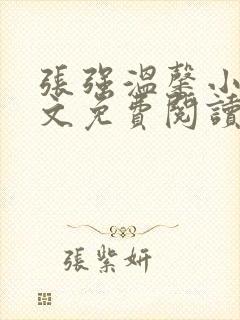 張強溫馨小
文免費閱讀
張紫妍